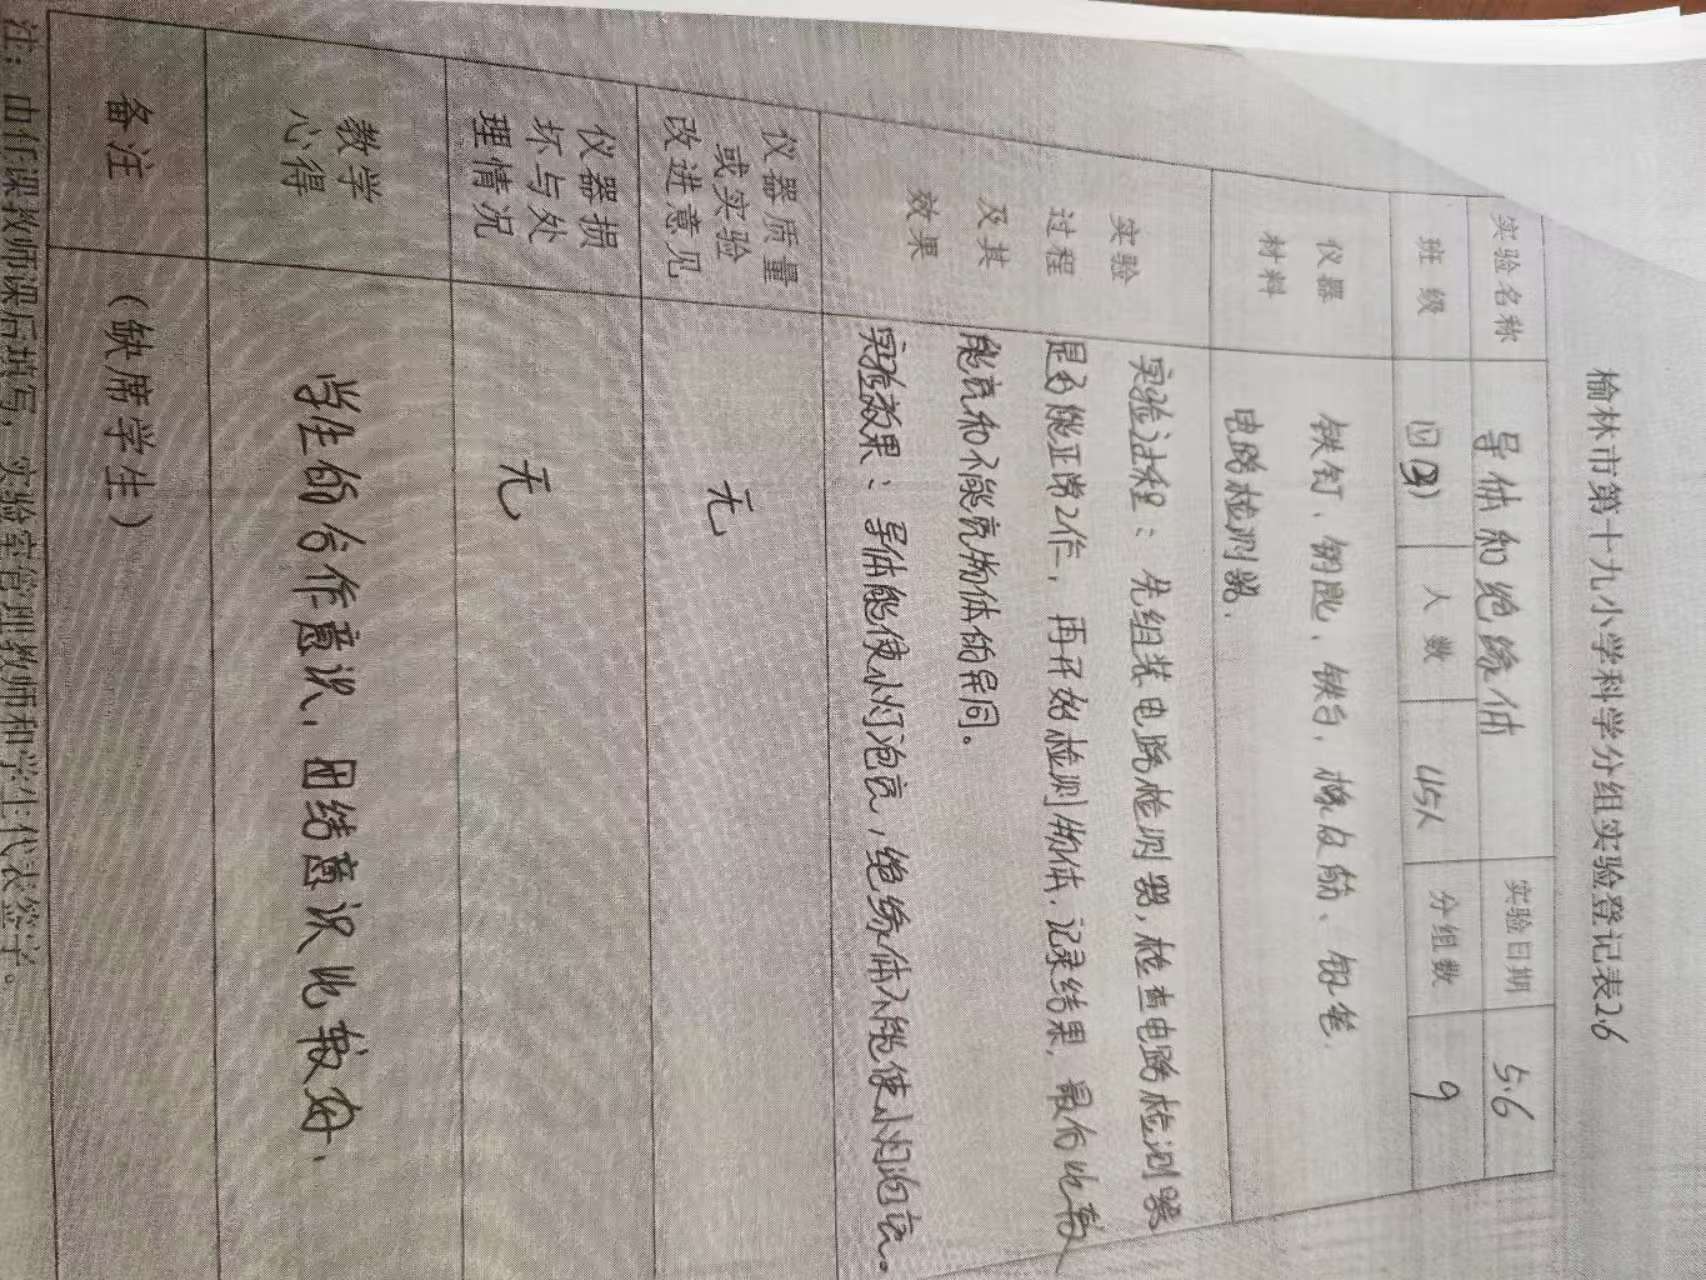 榆林市第十九小学科学分组实验登记表2.6
实验名称 导体和绝缘体 实验日期 5.6
班级 四(3) 人数 45人 分组数 9
仪器材料 铁钉、钥匙、铁勺、橡皮筋、铅笔.
电路检测器.
实验过程及其效果 实验过程：先组装电路检测器,检查电路检测器
是否能正常工作，再开始检测物体.记录结果,最后比较
能亮和不能亮物体的异同。
实验效果：导体能使小灯泡亮,绝缘体不能使小灯泡亮。
仪器质量或实验改进意见 无
仪器损坏与处理情况 无
教学心得 学生的合作意识，团结意识比较好.
备注 （缺席学生）
注：由任课教师课后填写，实验室管理教师和学生代表签字。